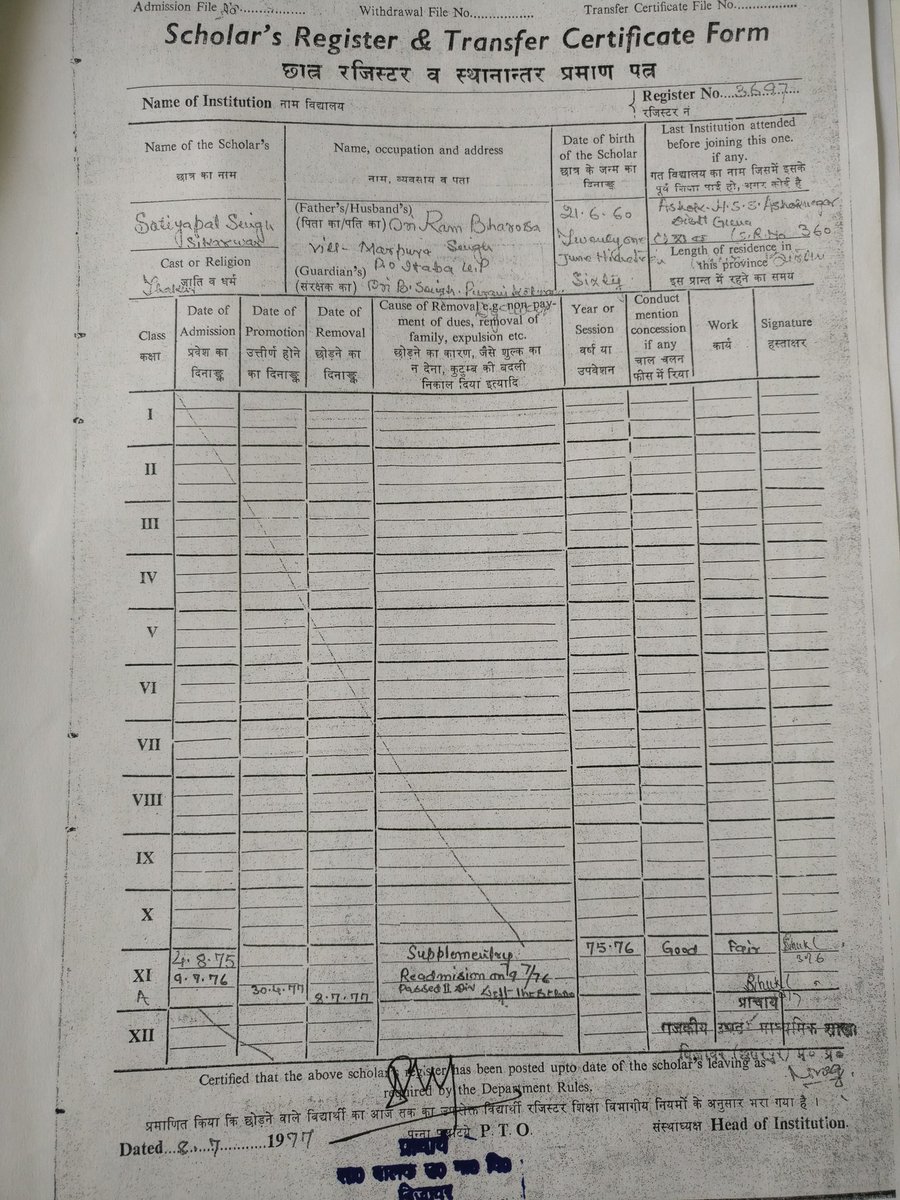 Admission File No............... Withdrawal File No............... Transfer Certificate File No...............
Scholar's Register & Transfer Certificate Form
छात्र रजिस्टर व स्थानान्तर प्रमाण पत्र
Name of Institution नाम विद्यालय
Register No...3697...
रजिस्टर नं
Name of the Scholar's
छात्र का नाम
Name, occupation and address
नाम, व्यवसाय व पता
Date of birth
of the Scholar
छात्र के जन्म का
दिनाङ्क
Last Institution attended
before joining this one.
if any.
गत विद्यालय का नाम जिसमें इसके
पूर्व शिक्षा पाई हो, अगर कोई है
Satiyapal Singh
Cast or Religion
जाति व धर्म
Thakur
(Father's/Husband's)
(पिता का/पति का) Ram Bharosa
Singh
Vill-
(Guardian's) Po
(संरक्षक का) B. Singh
21.6.60
Twenty one
June
Sixty
Ashok H.S.S. Ashoknagar
Distt Guna
S.R.No 360
Length of residence in
this province
इस प्रान्त में रहने का समय
Class
कक्षा
Date of
Admission
प्रवेश का
दिनाङ्क
Date of
Promotion
उत्तीर्ण होने
का दिनाङ्क
Date of
Removal
छोड़ने का
दिनाङ्क
Cause of Removal e.g. non-pay-
ment of dues, removal of
family, expulsion etc.
छोड़ने का कारण, जैसे शुल्क का
न देना, कुटुम्ब की बदली
निकाल दिया इत्यादि
Year or
Session
वर्ष या
उपवेशन
Conduct
mention
concession
if any
चाल चलन
फीस में रिया
Work
कार्य
Signature
हस्ताक्षर
I
II
III
IV
V
VI
VII
VIII
IX
X
4.8.75 Supplementry 75.76 Good Fair
XI 9.7.76 Readmision on 9/7/76
A 30.4.77 8.7.77 Passed II Div Left the
प्राचार्य
XII
राजकीय उच्च माध्यमिक शाला
Certified that the above scholar's register has been posted upto date of the scholar's leaving as
required by the Department Rules.
प्रमाणित किया कि छोड़ने वाले विद्यार्थी का आज तक का उपरोक्त विद्यार्थी रजिस्टर शिक्षा विभागीय नियमों के अनुसार भरा गया है ।
Dated...8...7......1977 P. T. O. संस्थाध्यक्ष Head of Institution.
प्राचार्य
बिजावर